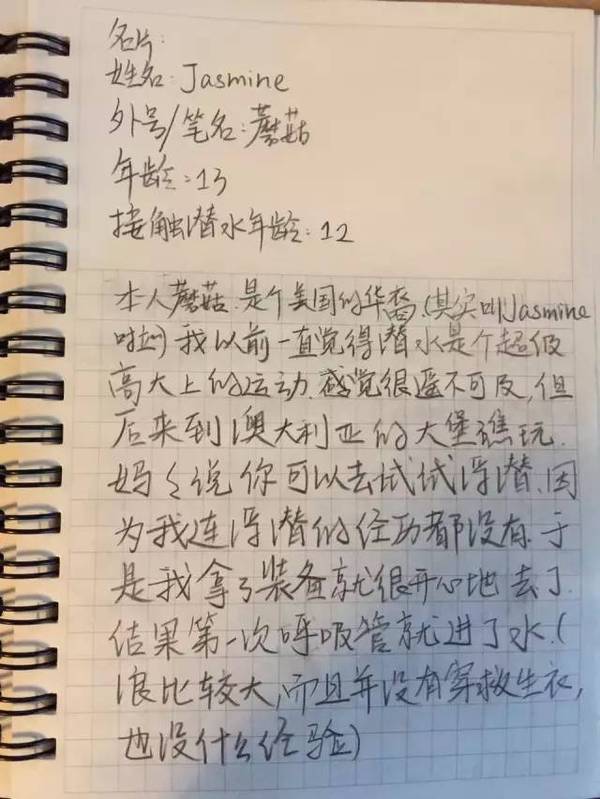 名片:
姓名:Jasmine
外号/笔名:蘑菇
年龄:13
接触潜水年龄:12
本人蘑菇.是个美国的华裔.(其实叫Jasmine
啦)我以前一直觉得潜水是个超级
高大上的运动.感觉很遥不可及,但
后来到澳大利亚的大堡礁玩.
妈々说你可以去试试浮潜.因
为我连浮潜的经历都没有.于
是我拿了装备就很开心地去了.
结果第一次呼吸管就进了水.(
浪比较大,而且并没有穿救生衣,
也没什么经验)